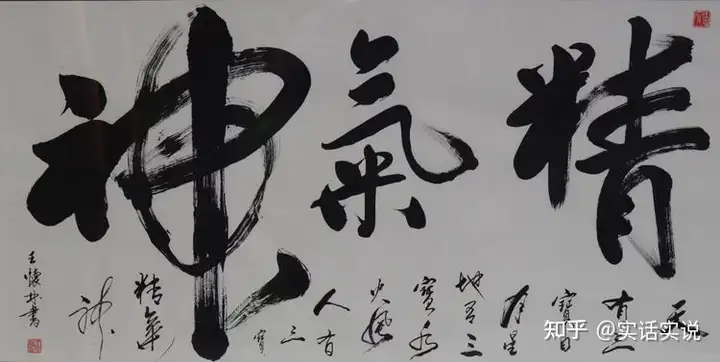 精氣神
天
有三
寶日
月星
地有三
寶水
火風
人有
三
寶
精氣
神
王懷書
知乎 @实话实说